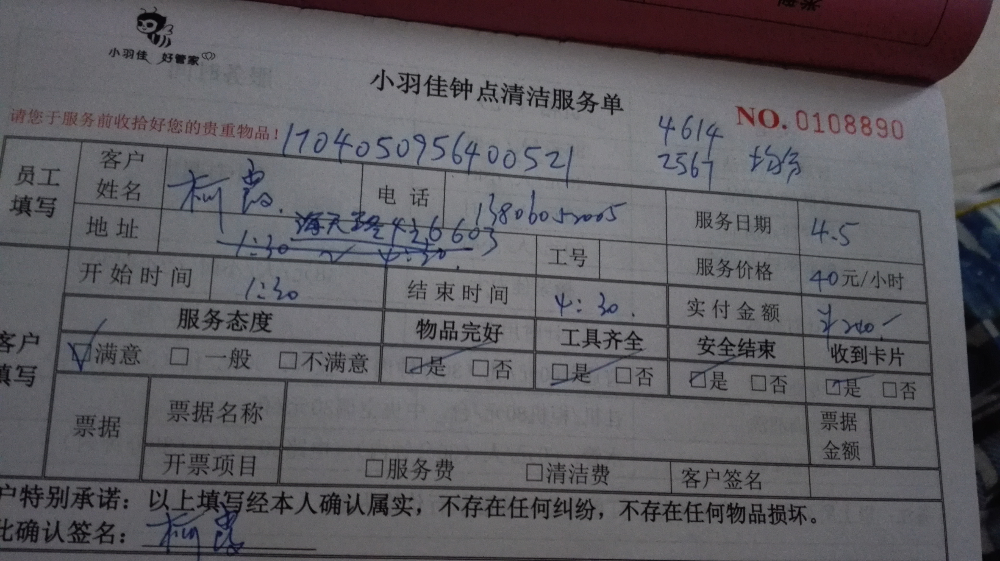 小羽佳 好管家
小羽佳钟点清洁服务单
NO. 0108890
请您于服务前收拾好您的贵重物品！
1704050956400521
4614
2567 均分
员工填写
客户姓名 柯 电话 13806052005 服务日期 4.5
地址 海天路436 603 工号 服务价格 40元/小时
1:30 4:30
开始时间 1:30 结束时间 4:30 实付金额 ¥240
客户填写
服务态度 物品完好 工具齐全 安全结束 收到卡片
☑满意 □一般 □不满意 ☑是 □否 ☑是 □否 ☑是 □否 ☑是 □否
票据 票据名称 票据金额
开票项目 □服务费 □清洁费 客户签名
户特别承诺：以上填写经本人确认属实，不存在任何纠纷，不存在任何物品损坏。
此确认签名：柯